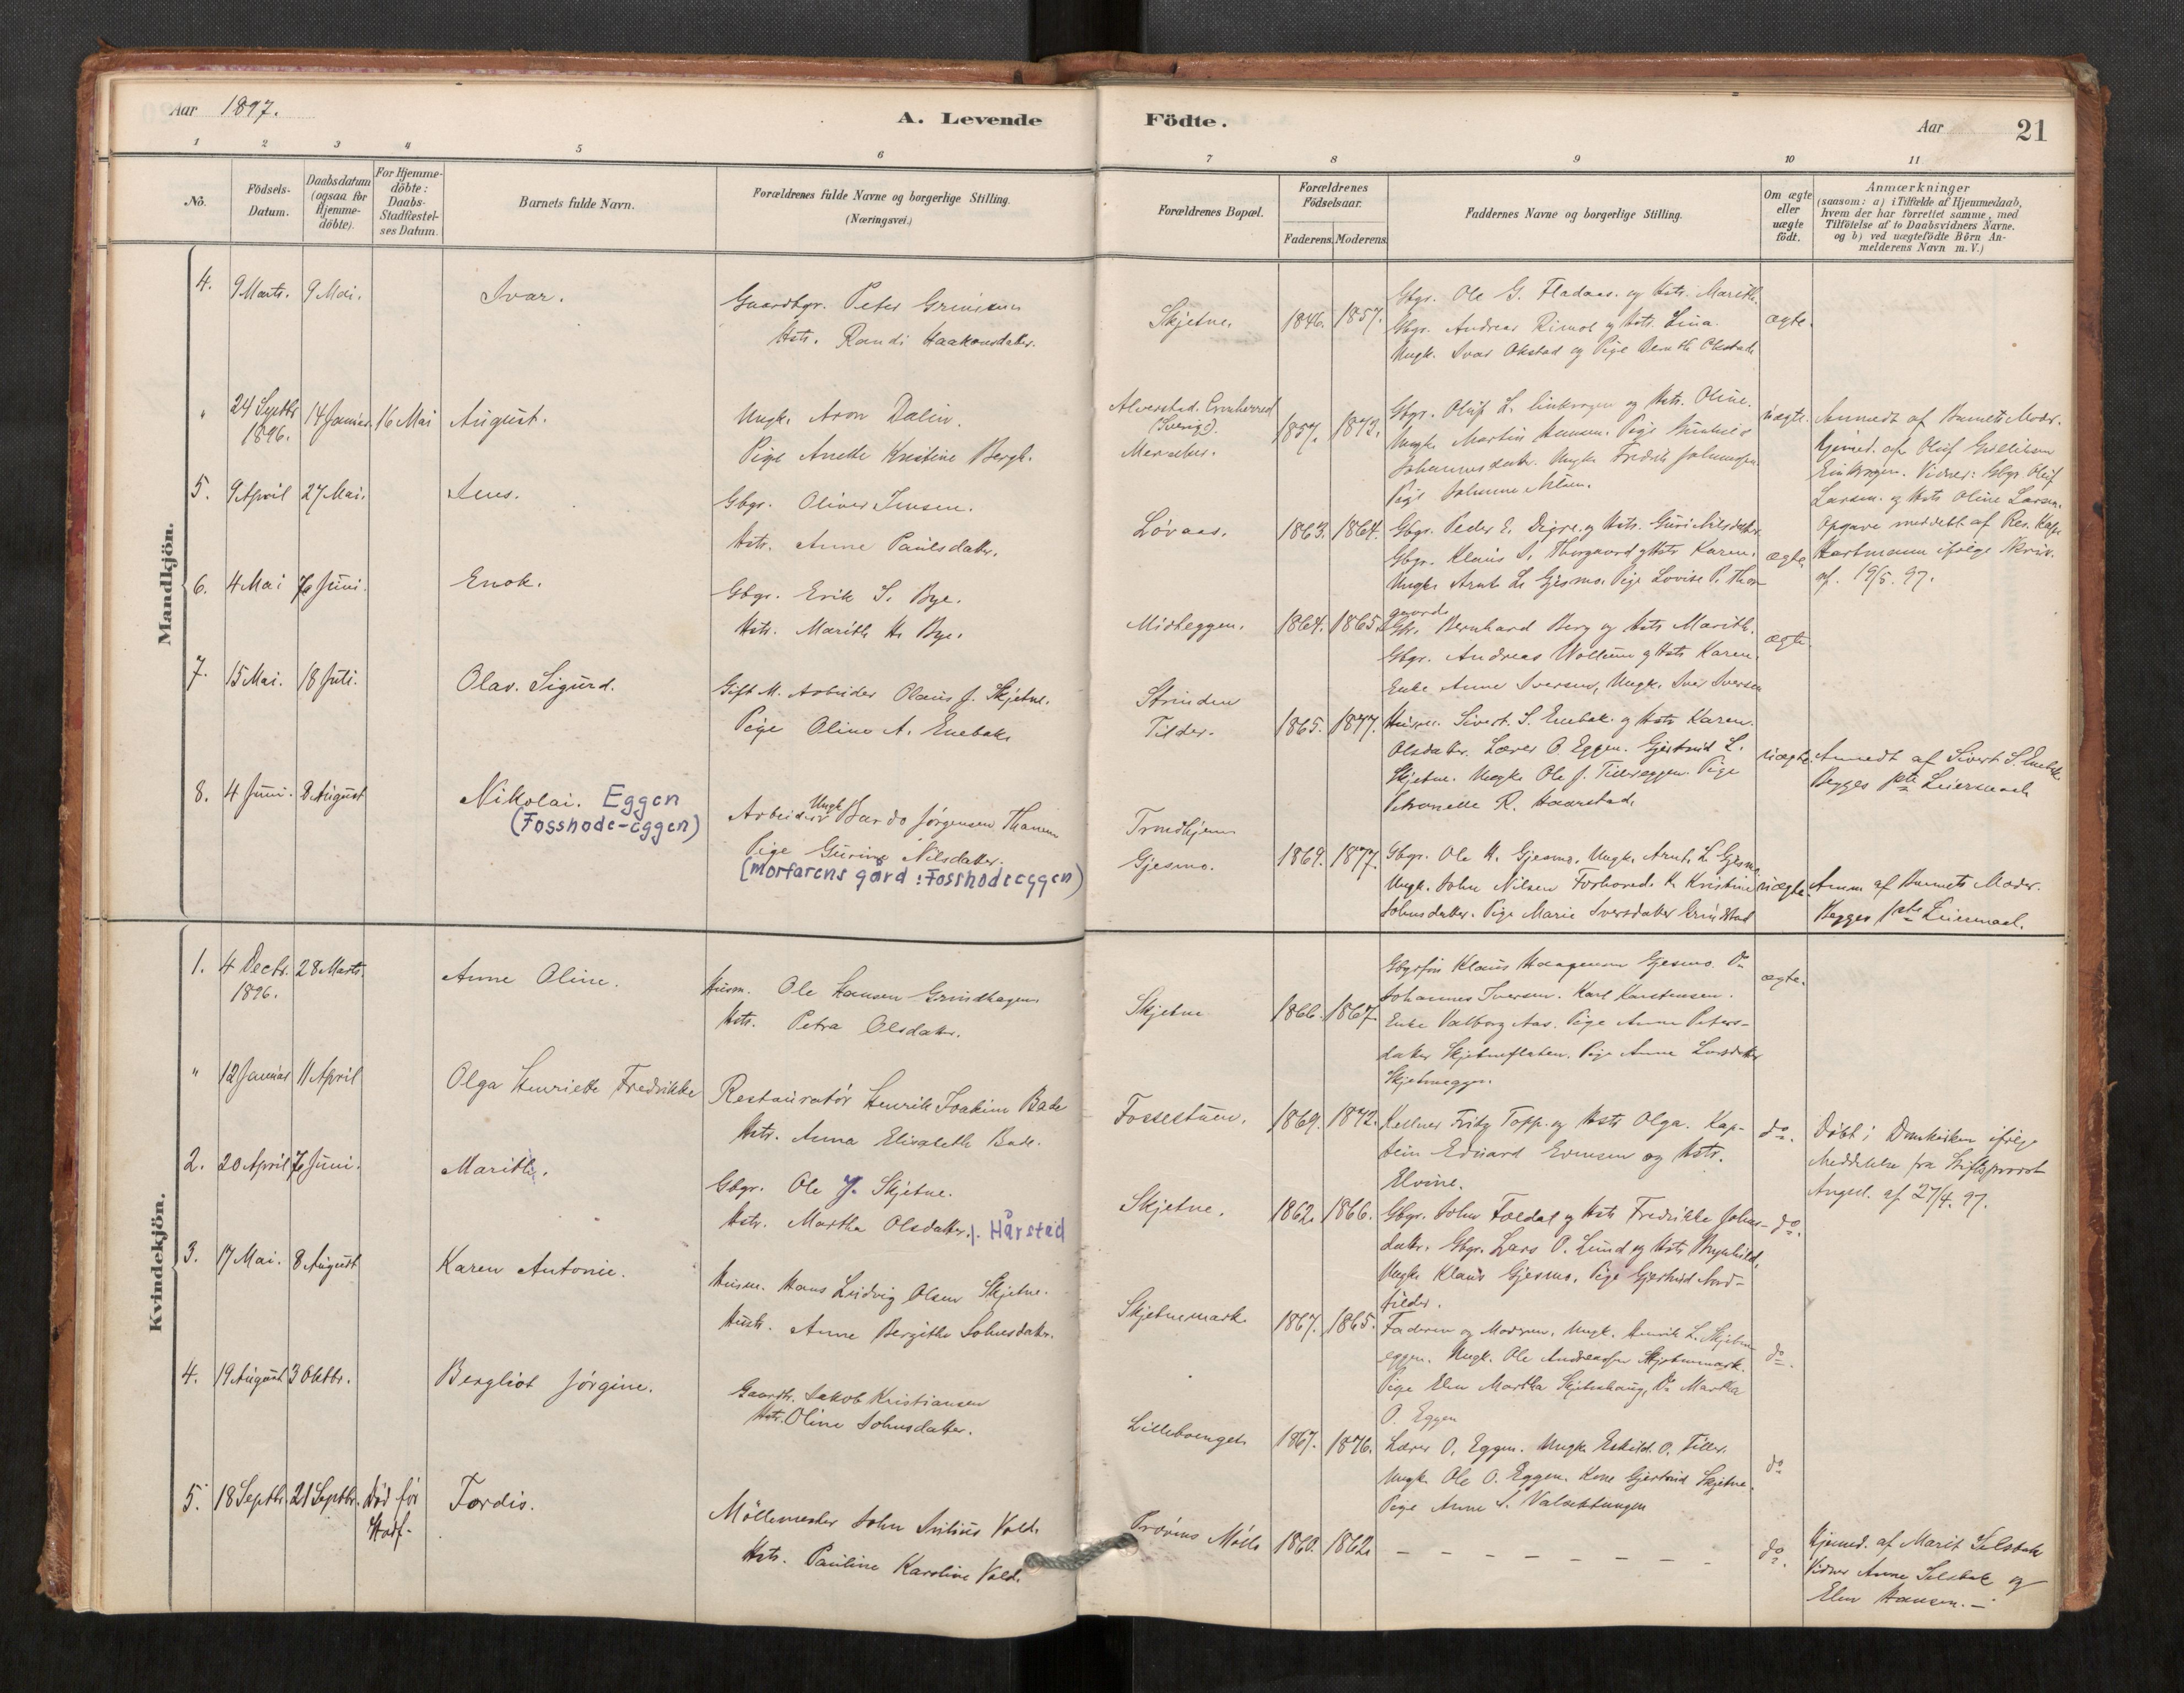 Aar 1897.
A. Levende Födte.
Aar 21
1 2 3 4 5 6 7 8 9 10 11
No.
Födsels-
Datum.
Daabsdatum
(ogsaa for
Hjemme-
döbte).
For Hjemme-
döbte:
Daabs-
Stadfæstel-
ses Datum.
Barnets fulde Navn.
Forældrenes fulde Navne og borgerlige Stilling.
(Næringsvei.)
Forældrenes Bopæl.
Forældrenes
Födselsaar.
Faderens. Moderens.
Faddernes Navne og borgerlige Stilling.
Om ægte
eller
uægte
födt.
Anmærkninger
(saasom: a) i Tilfælde af Hjemmedaab,
hvem der har forrettet samme, med
Tilföielse af to Daabsvidners Navne.
og b) ved uægtefödte Börn An-
melderens Navn m. V.)
Mandkjön.
4. 9 Marts. 9 Mai.
Ivar.
Gaardbgr. Peter
Hstr. Randi Haakonsdatter.
Skjetne. 1846. 1857.
Gbgr. Ole G. Fladaas. og Hstr. Marith.
Gbgr. Andreas Rimol og Hstr. Lina.
Ungk. Ivar Okstad og Pige Okstad
ægte.
" 24 Septbr 14 Januar. 16 Mai
1896.
August.
Ungk. Aron Dalin.
Pige Anette Kristine Bergh.
(Sverige).
1857. 1872.
Gbgr. Oluf L. og Hstr. Oline.
Ungk. Martin Hansen. Pige
Johannesdatr. Ungk. Fredrik
Pige Johanne
uægte.
Anmedt af Barnets Moder.
Hjemmed. af Oluf
Vidner: Gbgr. Oluf
Larsen. og Hstr Oline Larsen.
Opgave meddelt af Res. Kap.
Hartmann ifølge Skriv.
af. 19/5. 97.
5. 9 April 27 Mai.
Jens.
Gbgr. Oliver Jensen.
Hstr. Anne Paulsdatter.
Løvaas. 1863. 1864.
Gbgr. Peder E. Digre. og Hstr. Guri Nilsdatter
Gbgr. Klaus S. Thorgaard og Hstr Karen.
Ungk. Arnt L. Gjesmo. Pige Lovise P. Thor-
gaard.
ægte.
6. 4 Mai 7 Juni.
Enok.
Gbgr. Erik S. Bye.
Hstr. Marith H. Bye.
Midteggen. 1864. 1865.
Bernhard Berg og Hstr Marith.
Gbgr. Andreas Wollum og Hstr Karen.
Enke Anne Iversen, Ungk. Iver Iversen
ægte.
7. 15 Mai. 18 Juli.
Olav. Sigurd.
Gift M. Arbeider Olaus J. Skjetne.
Pige Oline A. Enebak.
Strinden
Tilder. 1865. 1877.
Husm. Sivert. S. Enebak. og Hstr Karen.
Olsdatter. Lærer O. Eggen. Gjertrud L.
Skjetne. Ungk. Ole J. Tillereggen. Pige
Petronelle R. Haarstad.
uægte.
Anmedt af Sivert S. Enebak
Begges 1ste Leiermaal
8. 4 Juni. 8 August
Nikolai. Eggen
(Fosshode-eggen)
Arbeider Ungk. Bardo Jørgensen Thanem
Pige Gurine Nilsdatter.
(morfarens gård: Fosshodeeggen)
Trondhjem
Gjesmo. 1869. 1877.
Gbgr. Ole H. Gjesmo. Ungk. Arnt. L. Gjesmo.
Ungk. John Nilsen Forhoved. K. Kristine
Johnsdatter. Pige Marie Iversdatter Grindstad
uægte.
Anm. af Barnets Moder.
Begges 1ste Leiermaal.
Kvindekjön.
1. 4 Decbr. 28 Marts
1896.
Anne Oline.
Husm. Ole Hansen Grindhagen
Hstr. Petra Olsdatter.
Skjetne 1866. 1867.
Klaus Haagensen Gjesmo. Do
Johannes Iversen. Karl Karstensen.
Enke Valborg Aas. Pige Anne Peters-
datter Skjetneflaten. Pige Anne Larsdatter
Skjetneeggen.
ægte.
" 12 Januar 11 April
Olga Henriette Fredrikke
Restauratør Henrik Joakim Bade
Hstr. Anna Elisabeth Bade.
Fossestuen. 1869. 1872.
Kellner Fritz Topp. og Hstr Olga. Kap-
tein Eduard Evensen og Hstr.
Elvine.
do.
Døbt i Domkirken ifølge
Meddelelse fra Stiftsprovst
Angell. af 27/4. 97.
2. 20 April 7 Juni.
Marith.
Gbgr. Ole J. Skjetne.
Hstr. Martha Olsdatter. f. Hårstad
Skjetne. 1862. 1866.
Gbgr. John Foldal og Hstr Fredrikke Johns-
datter. Gbgr. Lars O. Lund og Hstr Brynhild.
Ungk. Klaus Gjesmo. Pige Gjertrud Nord-
tilder.
do.
3. 17 Mai. 8 August
Karen Antonie.
Husm. Hans Ludvig Olsen Skjetne.
Hustr. Anne Bergitte Johnsdatter.
Skjetnemark. 1867. 1865.
Faderen og Moderen. Ungk. Henrik L. Skjetne-
eggen. Ungk. Ole Andreassen Skjetnemark.
Pige Elen Martha Skjetnehaug, Do Martha
O. Eggen
do.
4. 19 August 3 Oktbr.
Bergliot Jørgine.
Gaardbr. Jakob Kristiansen
Hstr. Oline Johnsdatter.
Lillevenget. 1867. 1876.
Lærer O. Eggen. Ungk. Eskild. O. Tiller.
Ungk. Ole O. Eggen. Kone Gjertrud Skjetne.
Pige Anne S.
do
5. 18 Septbr. 21 Septbr. Død før
Stadf.
Tordis.
Møllemester John Julius Vold.
Hstr. Pauline Karoline Vold.
Mølle 1860. 1862.
– – – – – – – –
do.
Hjemmed. af Marit Selsbak
Vidner Anne Selsbak og
Elen Hansen. –